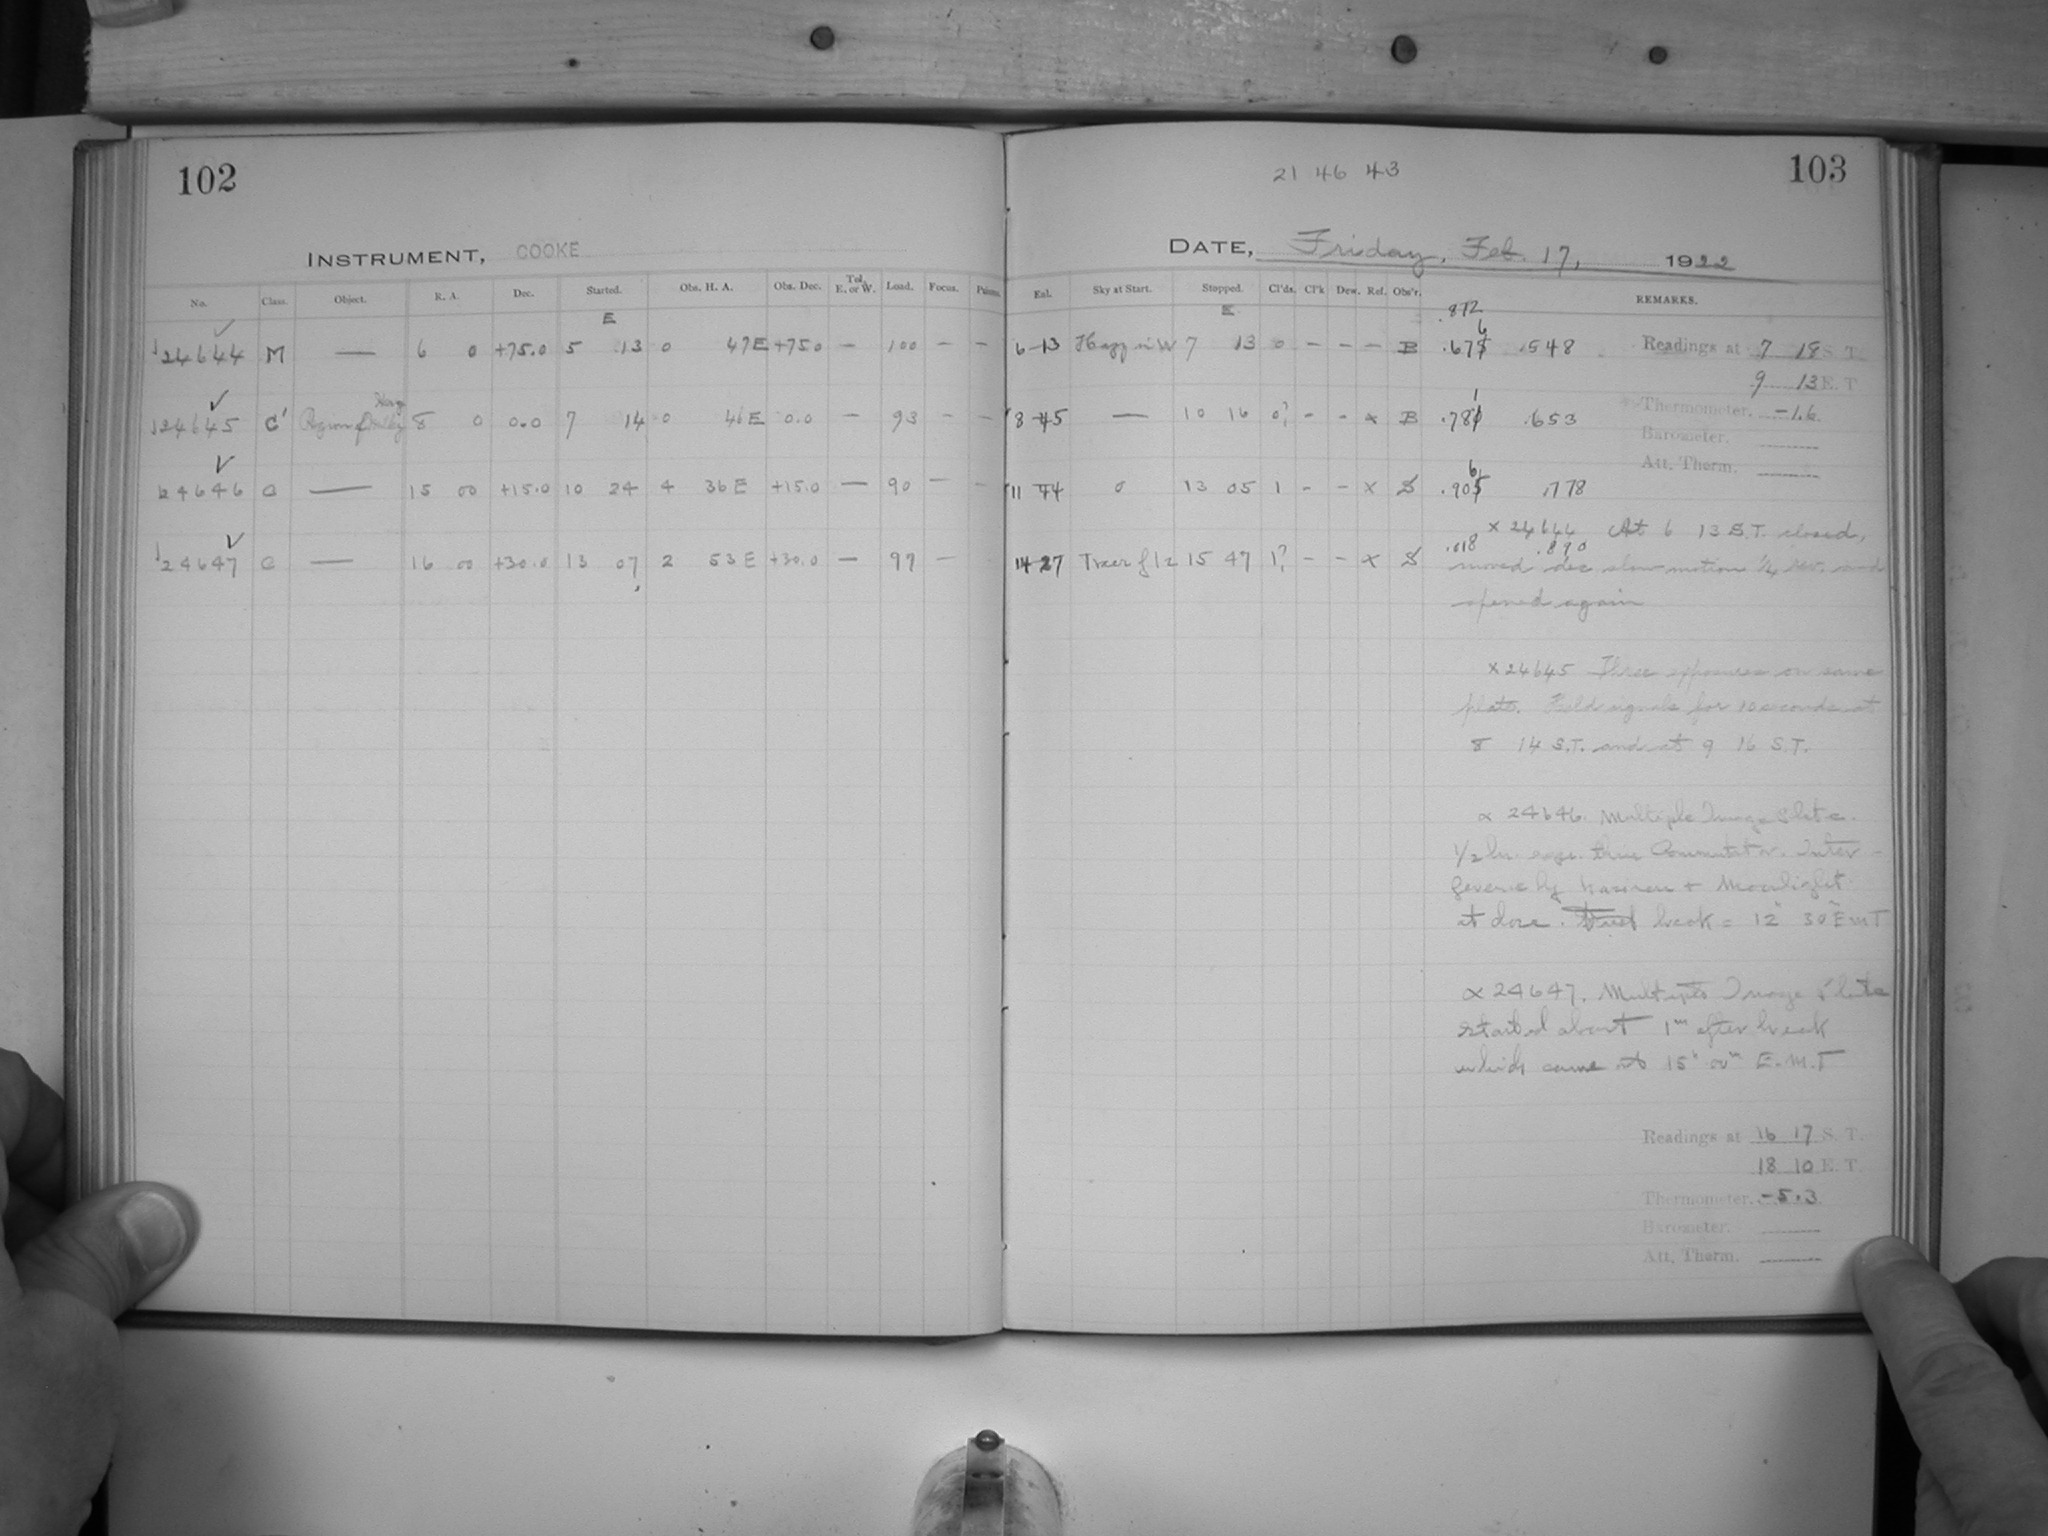 102
21 46 43
103
INSTRUMENT, COOKE
DATE, Friday, Feb. 17, 1922
No. Class. Object. R. A. Dec. Started. Obs. H. A. Obs. Dec. Tel. E. or W. Load. Focus. Prisms.
Eal. Sky at Start. Stopped. Cl'ds. Cl'k Dew. Ref. Obs'r. REMARKS.
E
E
.872
24644 M — 6 0 +75.0 5 13 0 47E +75.0 — 100 — —
6 13 Hazy in W 7 13 0 - - - B .548
Readings at 7 18 S. T.
9 13 E. T
24645 C' Region of 8 0 0.0 7 14 0 46E 0.0 — 93 — —
8 45 — 10 16 0? - - x B .653
Thermometer. -1.6
Barometer.
Att. Therm.
24646 C — 15 00 +15.0 10 24 4 36E +15.0 — 90 — —
11 44 0 13 05 1 - - x S .778
24647 C — 16 00 +30.0 13 07 2 53E +30.0 — 97 —
14 27 15 47 1? - - x S .018 .890
x 24644 At 6 13 S.T. closed,
moved dec slow motion 1/4 rev. and
opened again
x 24645 Three exposures on same
plate. Held signals for 10 seconds at
8 14 S.T. and at 9 16 S.T.
x 24646. Multiple Image Plate.
1/2 hr. exps. thru Commutator. Inter-
by + Moonlight
at close. break = 12h 30m E.M.T
x 24647. Multiple Image Plate
started about 1m after break
which came at 15h 00m E.M.T
Readings at 16 17 S. T.
18 10 E. T.
Thermometer. -5.3
Barometer.
Att. Therm.